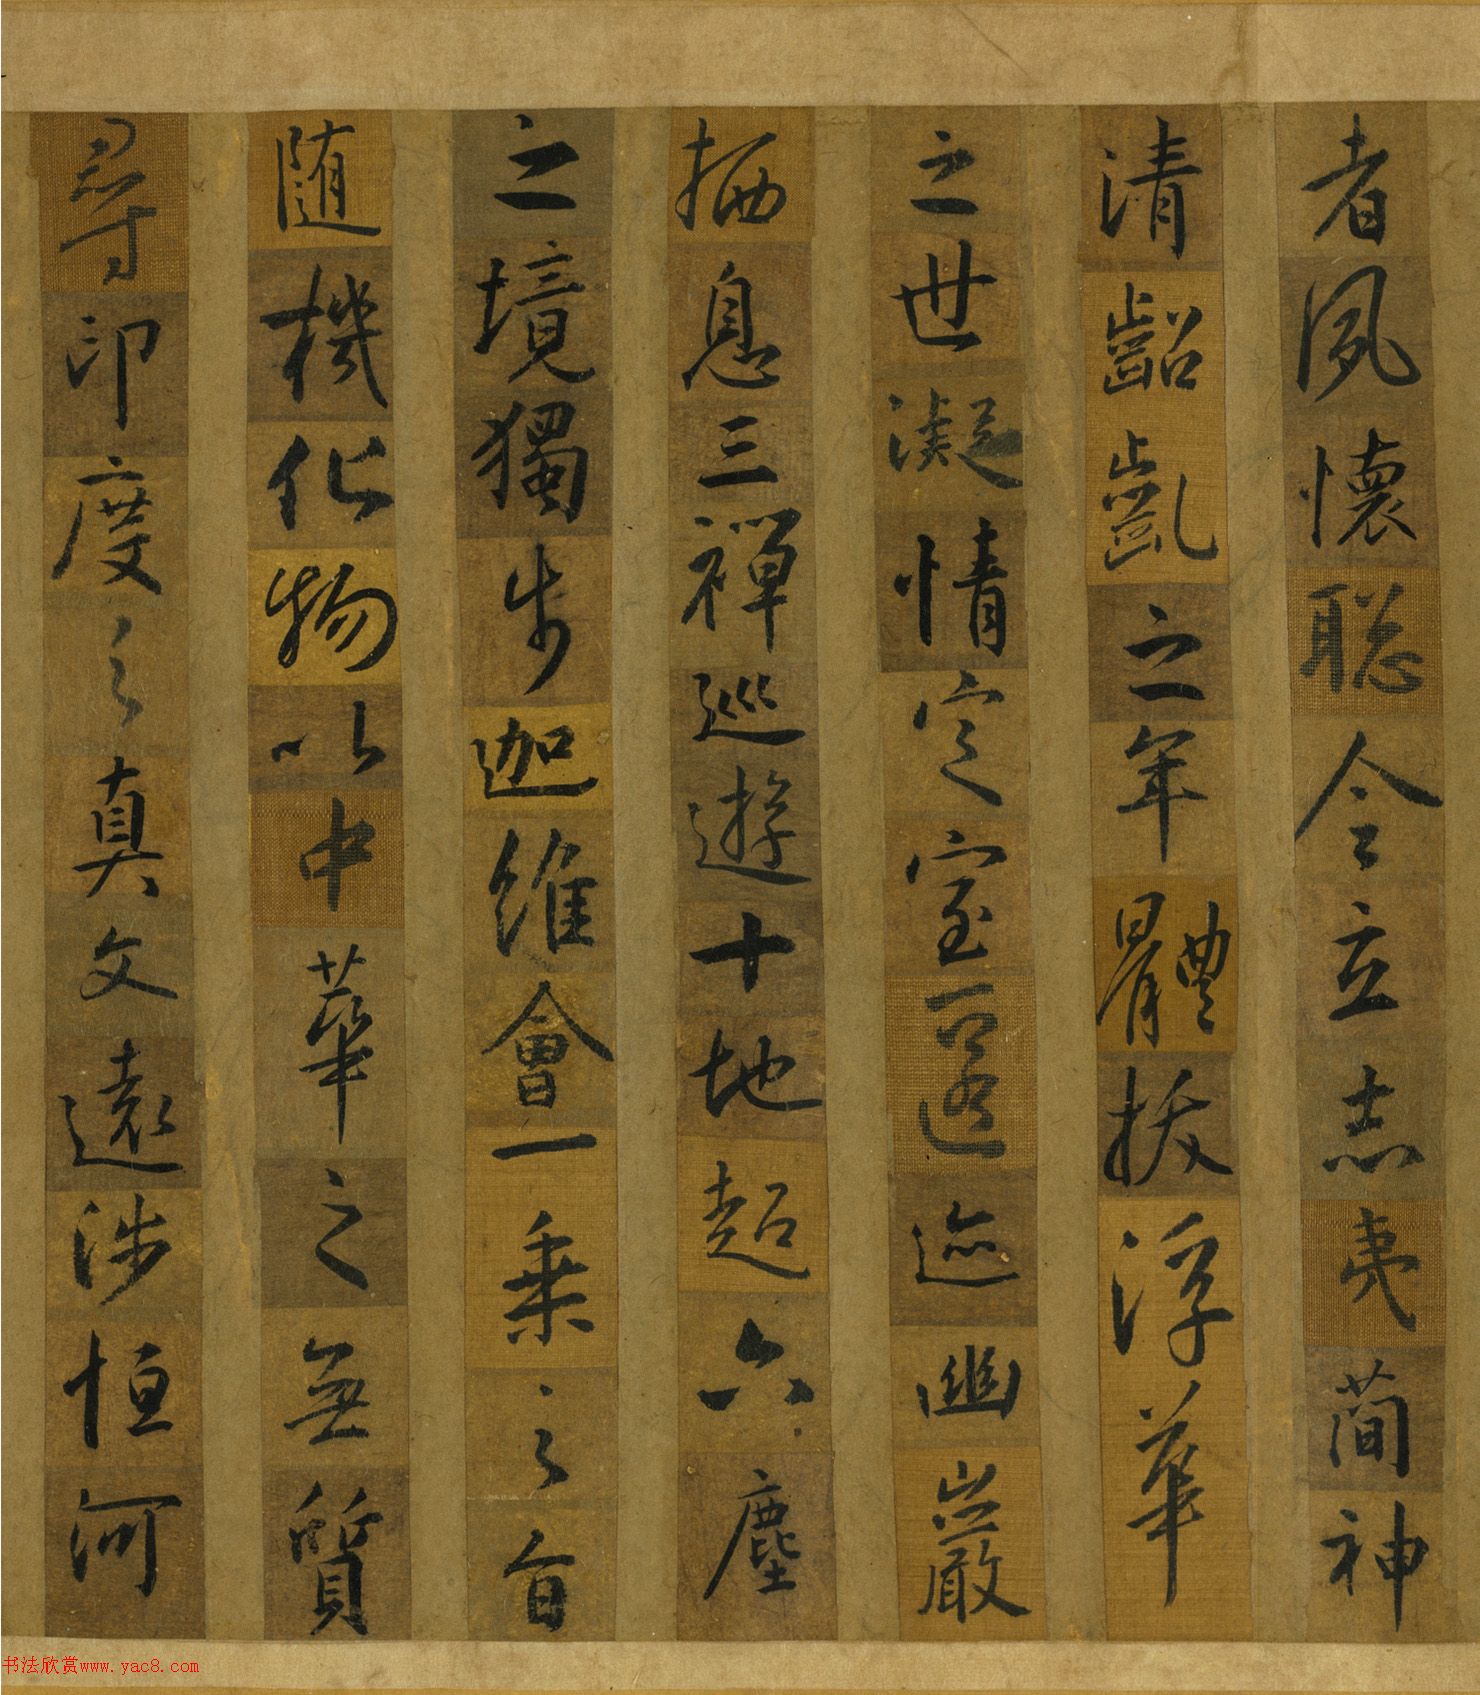 者夙懷聰令立志夷簡神
清齠齔之年體拔浮華
之世凝情定室匿迹幽巖
栖息三禪巡遊十地超六塵
之境獨步迦維會一乘之旨
随機化物以中華之無質
尋印度之真文遠涉恒河
书法欣赏www.yac8.com